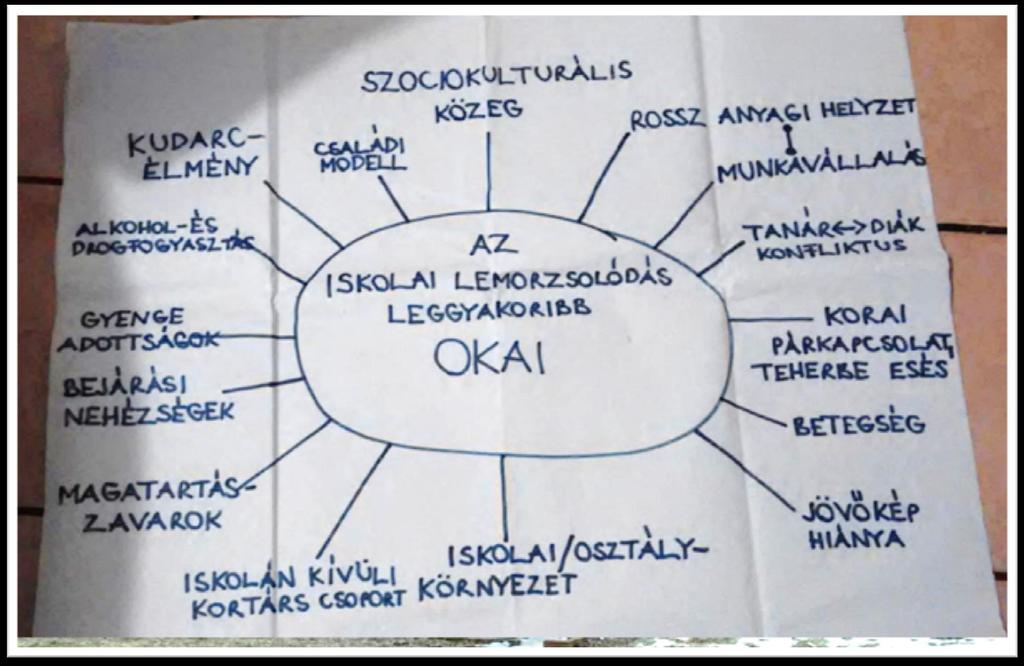 AZ
ISKOLAI LEMORZSOLÓDÁS
LEGGYAKORIBB
OKAI
SZOCIOKULTURÁLIS
KÖZEG
ROSSZ ANYAGI HELYZET
MUNKAVÁLLALÁS
TANÁR<->DIÁK
KONFLIKTUS
KORAI
PÁRKAPCSOLAT,
TEHERBE ESÉS
BETEGSÉG
JÖVŐKÉP
HIÁNYA
ISKOLAI/OSZTÁLY-
KÖRNYEZET
ISKOLÁN KÍVÜLI
KORTÁRS CSOPORT
MAGATARTÁS-
ZAVAROK
BEJÁRÁSI
NEHÉZSÉGEK
GYENGE
ADOTTSÁGOK
ALKOHOL-ÉS
DROGFOGYASZTÁS
KUDARC-
ÉLMÉNY
CSALÁDI
MODELL